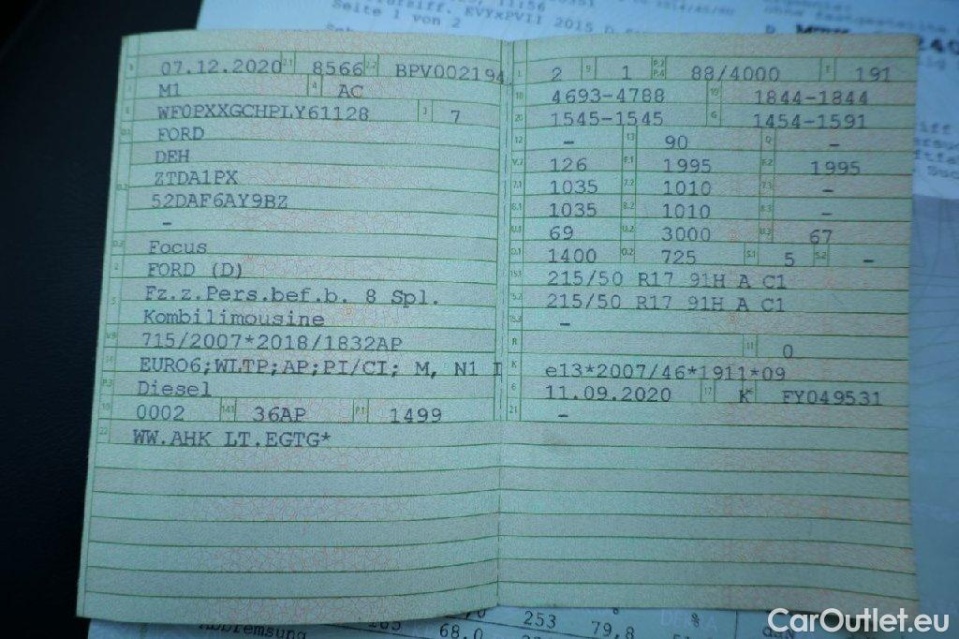 11:56
Seite 1 von 2
07.12.2020 2.1 8566 2.2 BPV002194
M1 4 AC
WF0PXXGCHPLY61128 3 7
FORD
DEH
ZTDA1PX
52DAF6AY9BZ
-
Focus
FORD (D)
Fz.z.Pers.bef.b. 8 Spl.
Kombilimousine
715/2007*2018/1832AP
EURO6;WLTP;AP;PI/CI; M, N1 I
Diesel
0002 36AP P.1 1499
WW.AHK LT.EGTG*
2 9 1 P.2 P.4 88/4000 191
4693-4788 1844-1844
20 1545-1545 G 1454-1591
12 - 13 90 Q -
V.7 126 F.1 1995 F.2 1995
7.1 1035 7.2 1010 7.3 -
8.1 1035 8.2 1010 8.3 -
U.1 69 U.2 3000 U.3 67
O.1 1400 O.2 725 S.1 5 S.2 -
215/50 R17 91H A C1
215/50 R17 91H A C1
-
R 11 0
K e13*2007/46*1911*09
6 11.09.2020 17 K 16 FY049531
21 -
Abbremsung 68,0 253 79,8 %
CarOutlet.eu